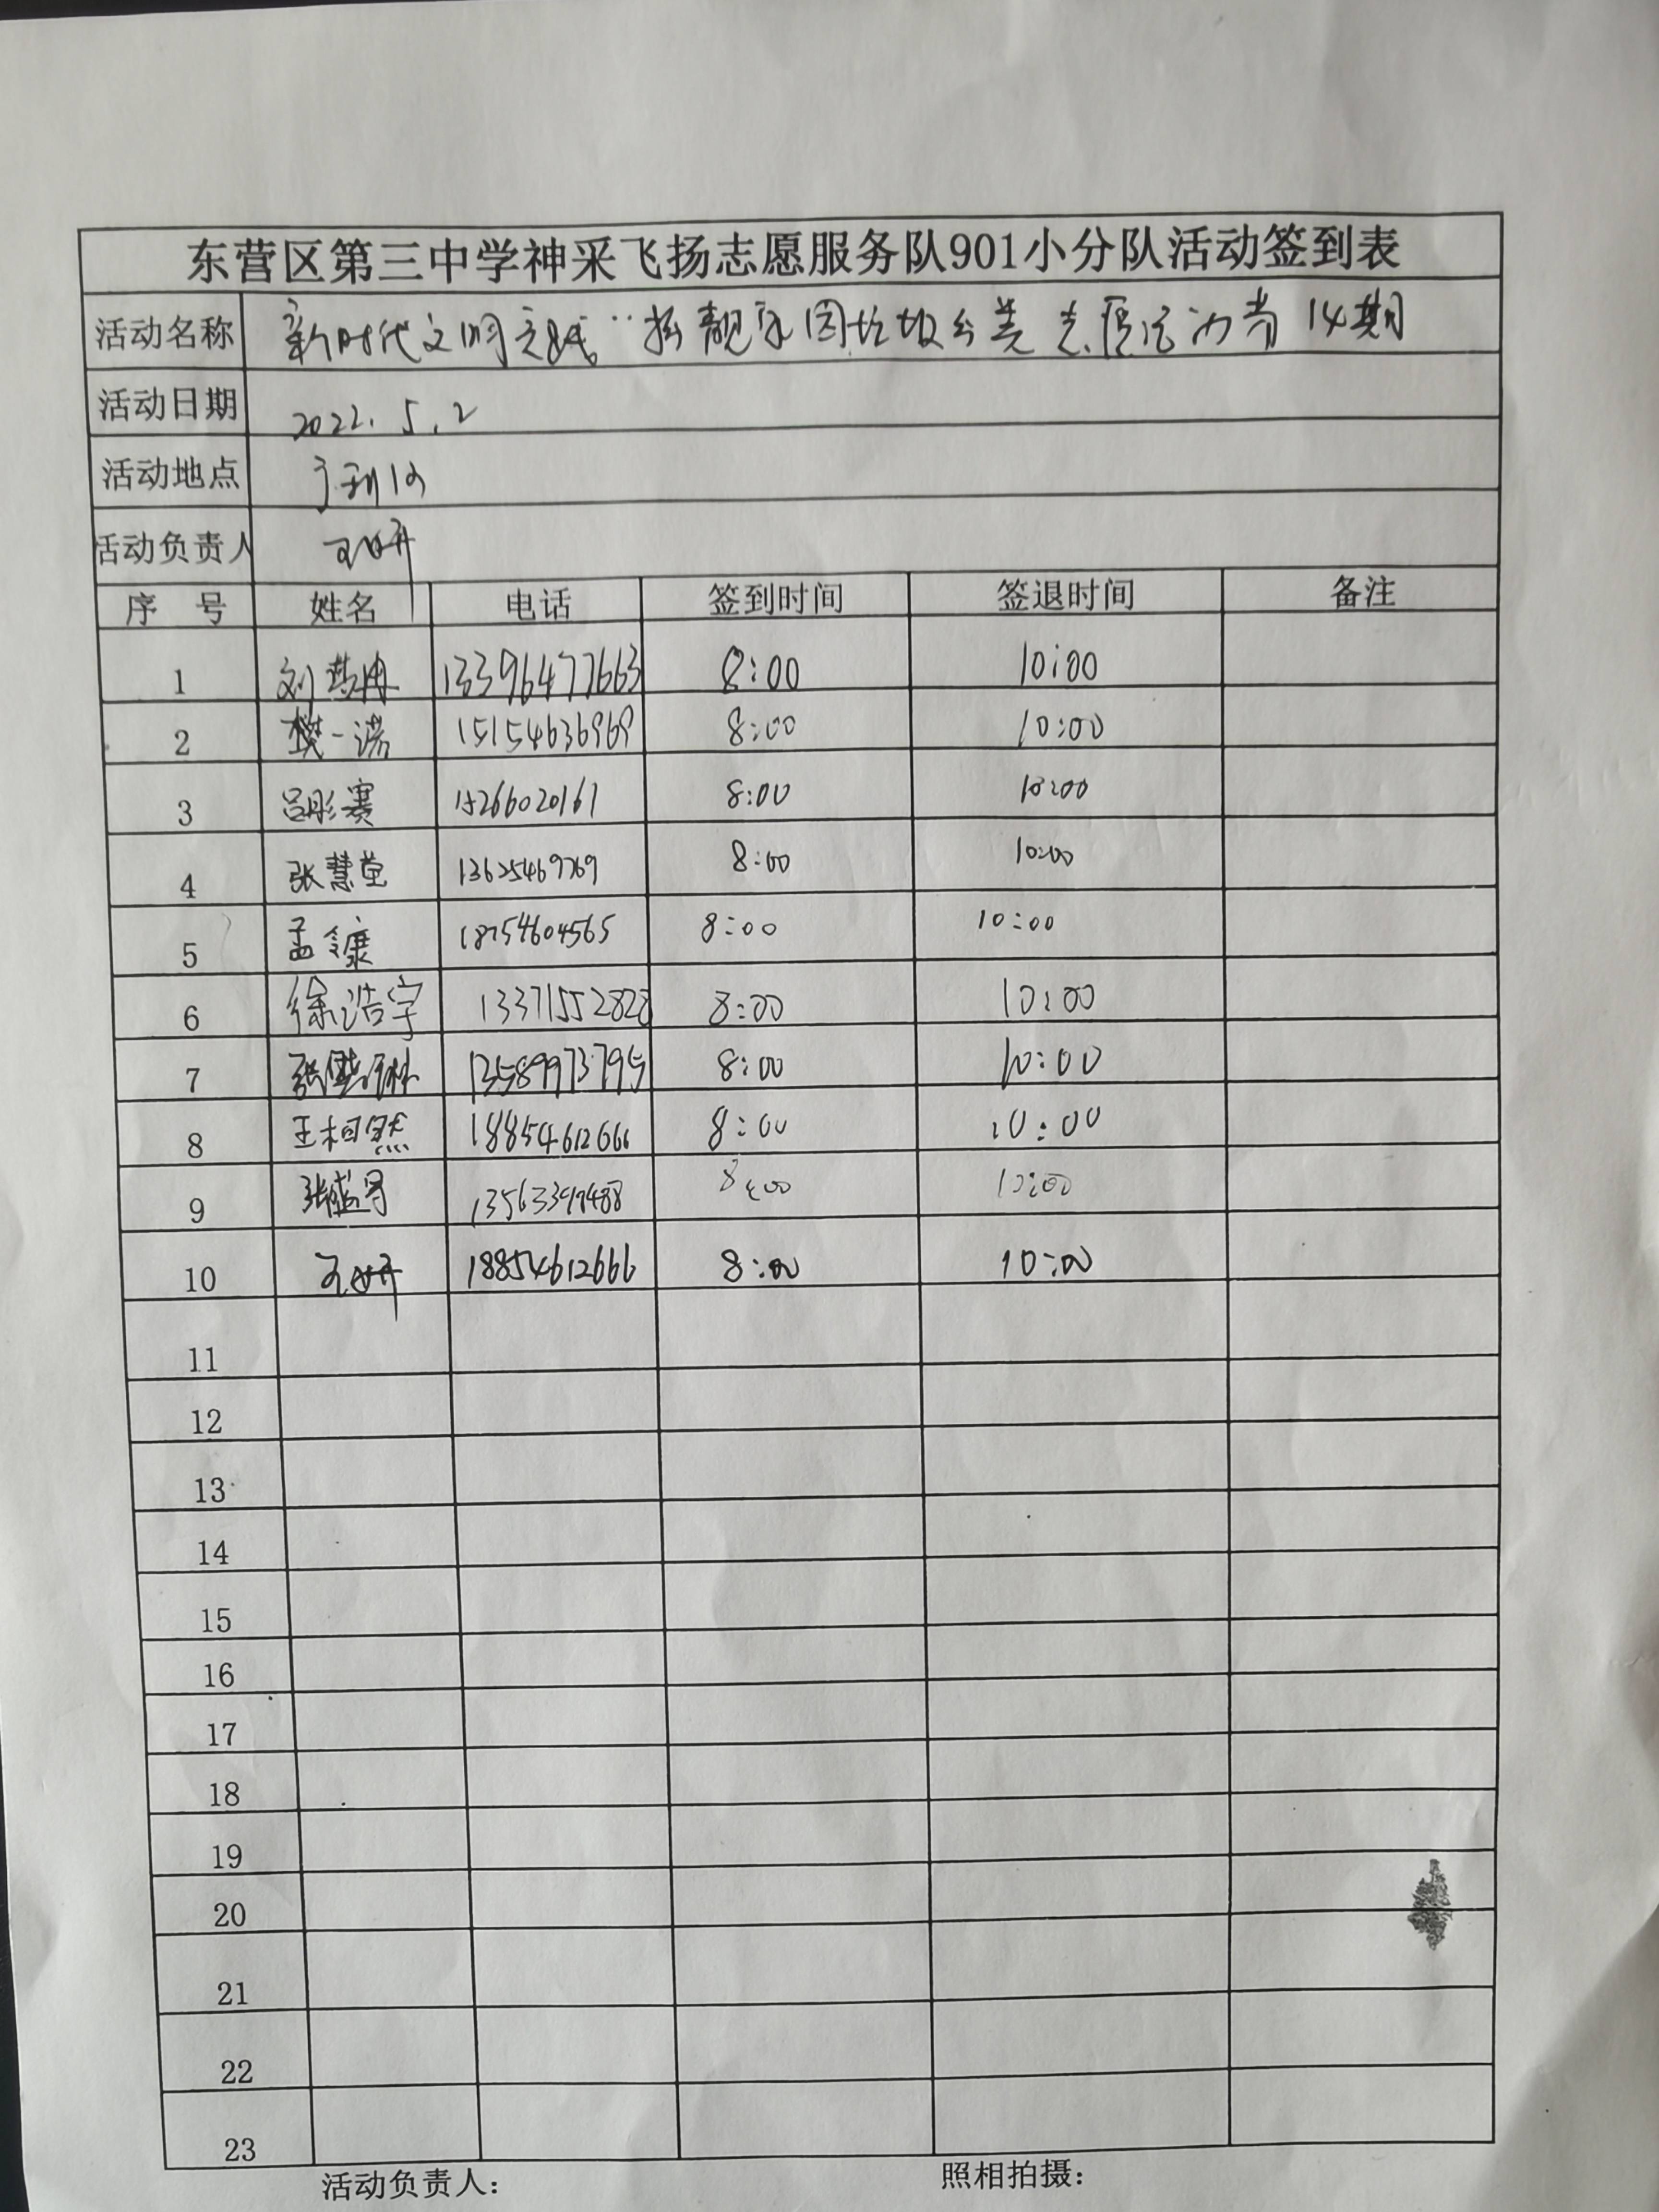 东营区第三中学神采飞扬志愿服务队901小分队活动签到表
活动名称 新时代文明实践"扮靓家园垃圾分类志愿活动 14期
活动日期 2022.5.2
活动地点
活动负责人 王妍
序 号 姓名 电话 签到时间 签退时间 备注
1 刘 13396477663 8:00 10:00
2 樊一诺 15154636969 8:00 10:00
3 吕彤赛 15266020161 8:00 10:00
4 张慧莹 13625469769 8:00 10:00
5 孟 18754604565 8:00 10:00
6 徐浩宇 13371552828 8:00 10:00
7 张 13589973795 8:00 10:00
8 王相然 18854612666 8:00 10:00
9 张 8:00 10:00
10 王妍 18854612666 8:00 10:00
11
12
13
14
15
16
17
18
19
20
21
22
23
活动负责人: 照相拍摄: